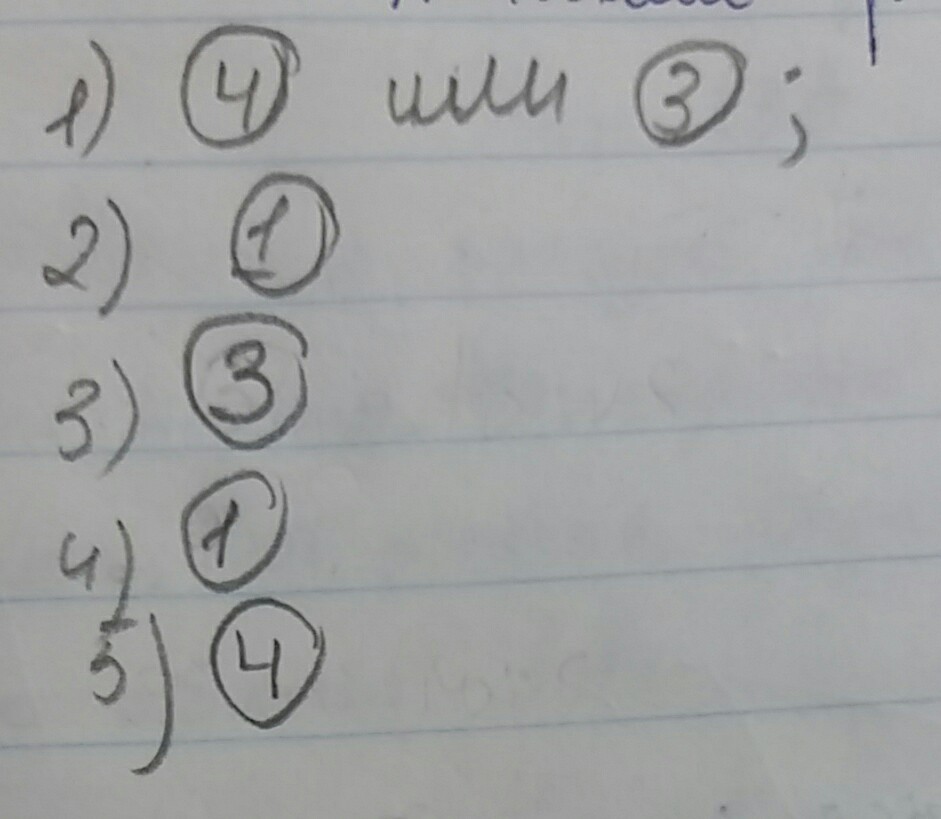 1) 4 или 3 ;
2) 1
3) 3
4) 1
5) 4